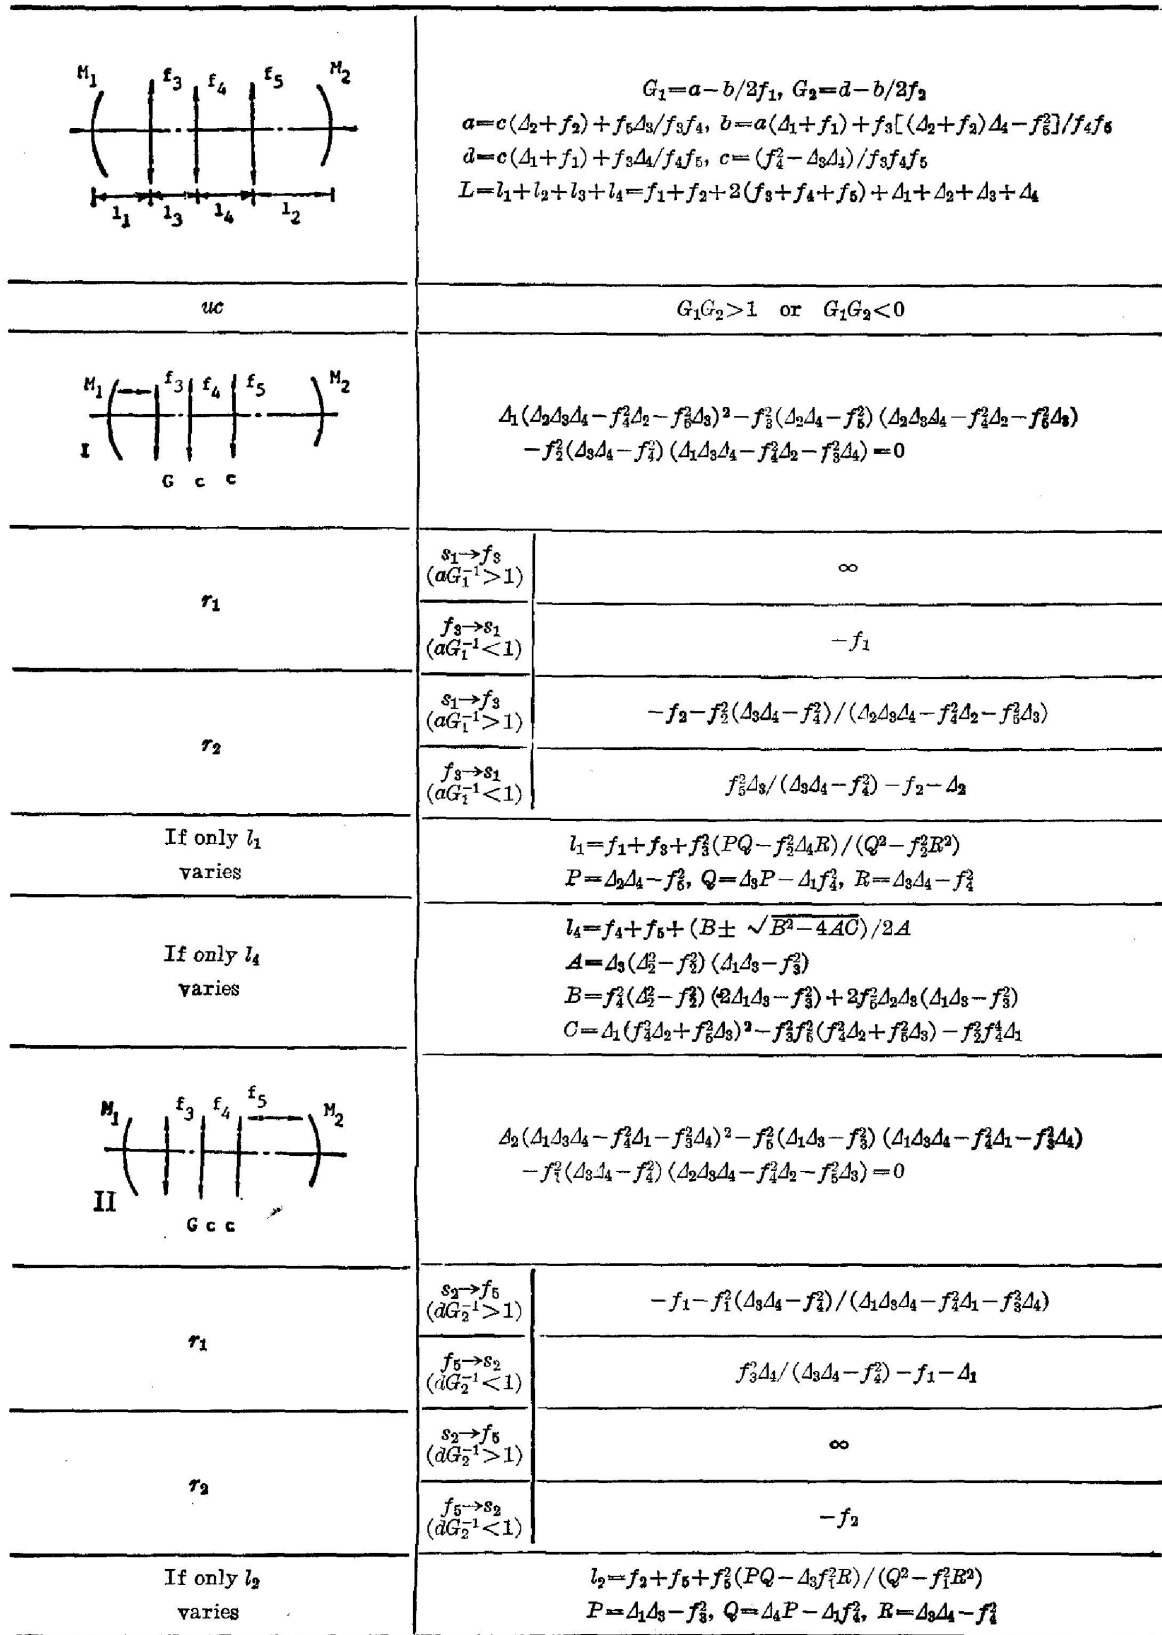 M₁ f₃ f₄ f₅ M₂
l₁ l₃ l₄ l₂
G₁=a−b/2f₁, G₂=d−b/2f₂
a=c(Δ₂+f₂)+f₅Δ₃/f₃f₄, b=a(Δ₁+f₁)+f₃[(Δ₂+f₂)Δ₄−f₅²]/f₄f₅
d=c(Δ₁+f₁)+f₃Δ₄/f₄f₅, c=(f₄²−Δ₃Δ₄)/f₃f₄f₅
L=l₁+l₂+l₃+l₄=f₁+f₂+2(f₃+f₄+f₅)+Δ₁+Δ₂+Δ₃+Δ₄
uc
G₁G₂>1 or G₁G₂<0
M₁ f₃ f₄ f₅ M₂
I
G c c
Δ₁(Δ₂Δ₃Δ₄−f₄²Δ₂−f₅²Δ₃)²−f₃²(Δ₂Δ₄−f₅²)(Δ₂Δ₃Δ₄−f₄²Δ₂−f₅²Δ₃)
−f₂²(Δ₃Δ₄−f₄²)(Δ₁Δ₃Δ₄−f₄²Δ₂−f₃²Δ₄)=0
r₁
s₁→f₃
(aG₁⁻¹>1)
∞
f₃→s₁
(aG₁⁻¹<1)
−f₁
r₂
s₁→f₃
(aG₁⁻¹>1)
−f₂−f₂²(Δ₃Δ₄−f₄²)/(Δ₂Δ₃Δ₄−f₄²Δ₂−f₅²Δ₃)
f₃→s₁
(aG₁⁻¹<1)
f₅²Δ₃/(Δ₃Δ₄−f₄²)−f₂−Δ₂
If only l₁
varies
l₁=f₁+f₃+f₃²(PQ−f₂²Δ₄R)/(Q²−f₂²R²)
P=Δ₂Δ₄−f₅², Q=Δ₃P−Δ₁f₄², R=Δ₃Δ₄−f₄²
If only l₄
varies
l₄=f₄+f₅+(B±√(B²−4AC))/2A
A=Δ₃(Δ₂²−f₂²)(Δ₁Δ₃−f₃²)
B=f₄²(Δ₂²−f₂²)(2Δ₁Δ₃−f₃²)+2f₅²Δ₂Δ₃(Δ₁Δ₃−f₃²)
C=Δ₁(f₄²Δ₂+f₅²Δ₃)²−f₃²f₅²(f₄²Δ₂+f₅²Δ₃)−f₂²f₄⁴Δ₁
M₁ f₃ f₄ f₅ M₂
II
G c c
Δ₂(Δ₁Δ₃Δ₄−f₄²Δ₁−f₃²Δ₄)²−f₅²(Δ₁Δ₃−f₃²)(Δ₁Δ₃Δ₄−f₄²Δ₁−f₃²Δ₄)
−f₁²(Δ₃Δ₄−f₄²)(Δ₂Δ₃Δ₄−f₄²Δ₂−f₅²Δ₃)=0
r₁
s₂→f₅
(dG₂⁻¹>1)
−f₁−f₁²(Δ₃Δ₄−f₄²)/(Δ₁Δ₃Δ₄−f₄²Δ₁−f₃²Δ₄)
f₅→s₂
(dG₂⁻¹<1)
f₃²Δ₄/(Δ₃Δ₄−f₄²)−f₁−Δ₁
r₂
s₂→f₅
(dG₂⁻¹>1)
∞
f₅→s₂
(dG₂⁻¹<1)
−f₂
If only l₂
varies
l₂=f₂+f₅+f₅²(PQ−Δ₃f₁²R)/(Q²−f₁²R²)
P=Δ₁Δ₃−f₃², Q=Δ₄P−Δ₁f₄², R=Δ₃Δ₄−f₄²